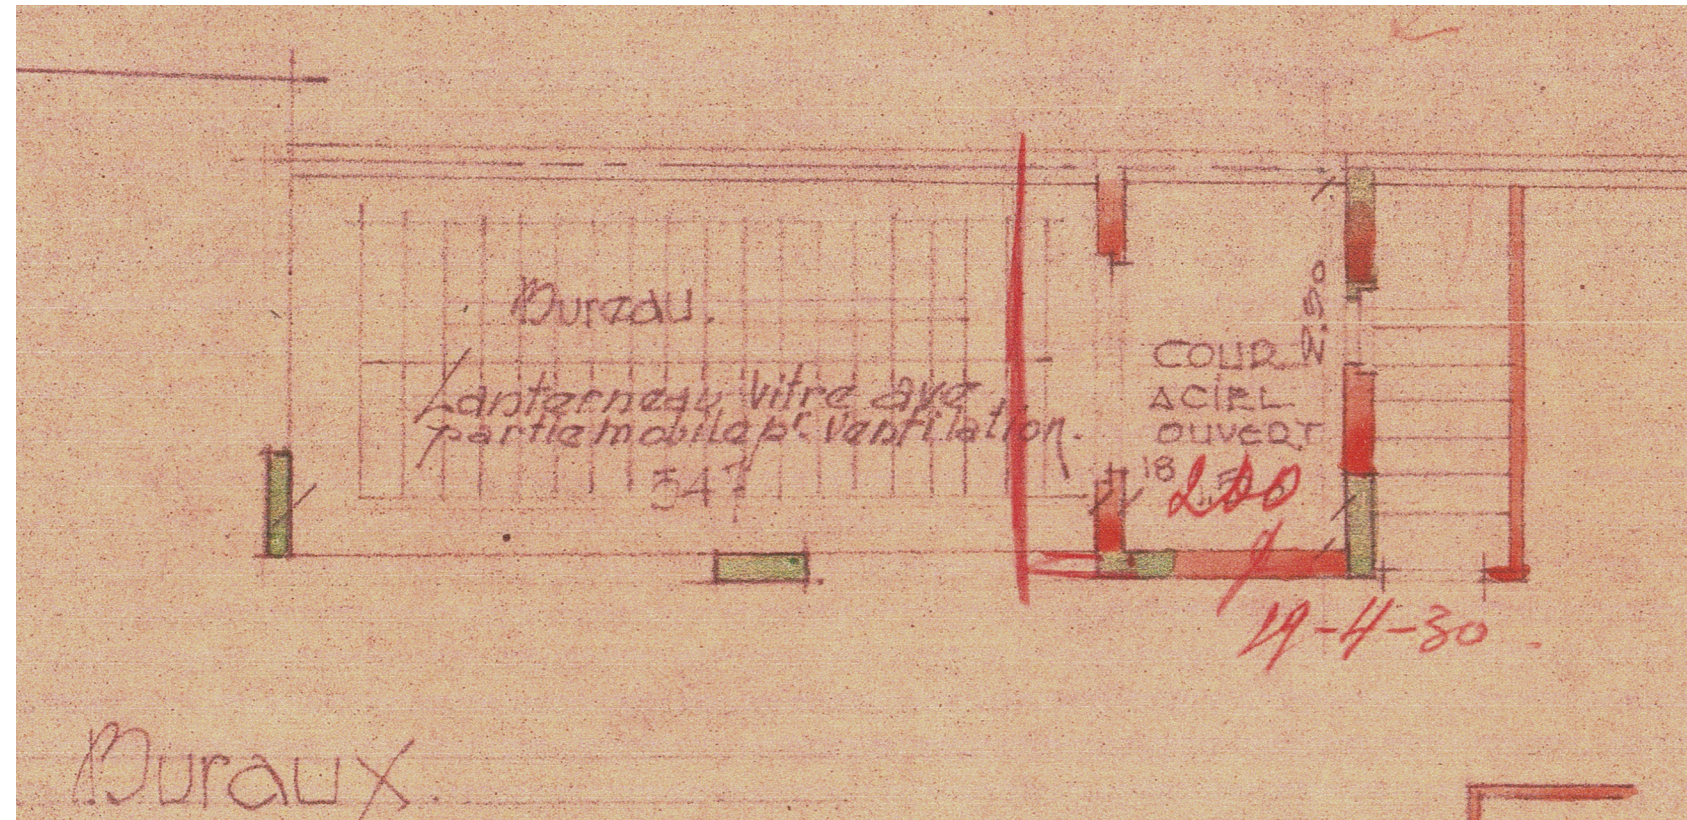 Bureau.
Lanterneau vitre ave
partie mobile pr ventilation.
547
2.90
COUR
A CIEL
OUVERT
18
200
19-4-30
Buraux.